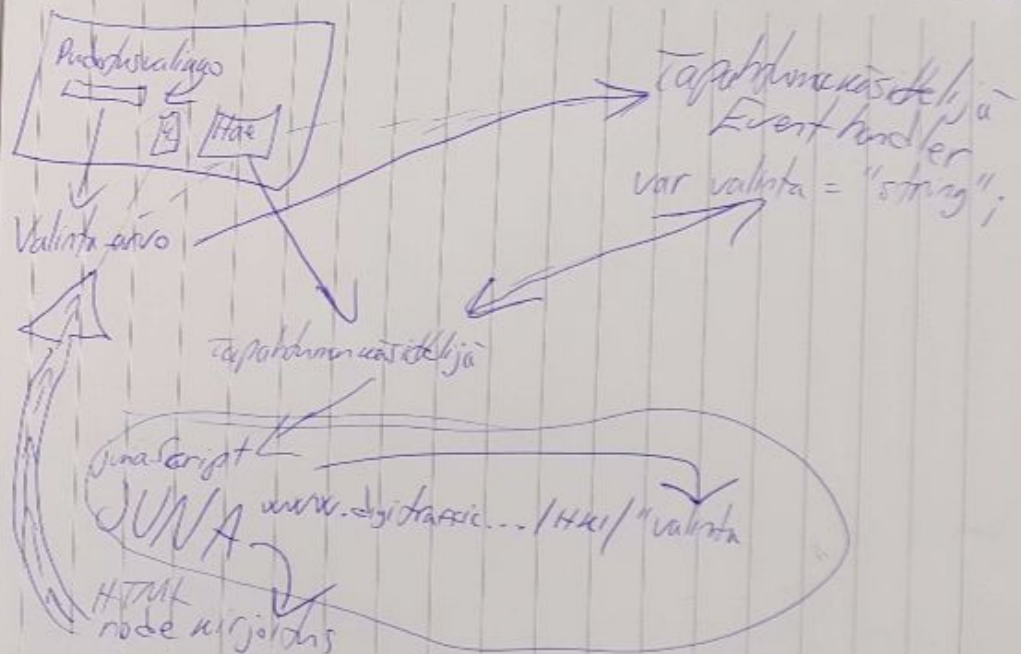 Pudotusvalikko
Hae
Tapahtumankäsittelijä
Event handler
var valinta = "string";
Valinta arvo
Tapahtumankäsittelijä
junaScript
JUNA www.digitraffic.../HKI/"valinta
HTML
node kirjoitus